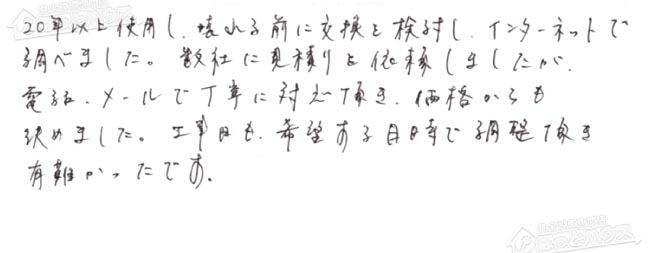 20年以上使用し、壊れる前に交換を検討し、インターネットで
調べました。数社に見積りを依頼しましたが、
電話、メールで丁寧に対応頂き、価格からも
決めました。工事日も、希望する日時で調整頂き
有難かったです。